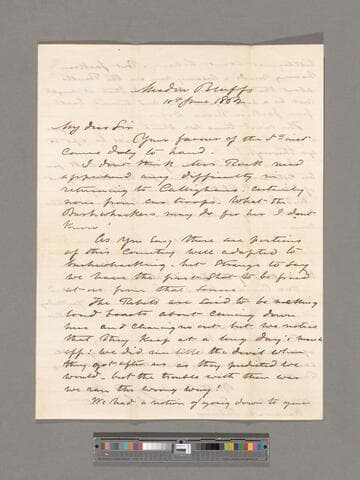 Meadow Bluffs
10th June 1862
My dear Sir
Your favour of the 5th inst
Came duly to hand.
I dont think Mrs need
apprehend any difficulty in
returning to Callaghans. Certainly
none from our troops. What the
Bushwhackers may do for her I dont
know!
As you say there are portions
of this Country well adapted to
bushwhacking, but strange to say
we have the first shot to be fired
at us from that source!
The Rebels are said to be making
loud boasts about coming down
here and cleaning us out but we notice
that they keep at a long day's march
off! We did run like the devil when
they got after us as they predicted we
would, but the trouble with them was
we ran the wrong way!
We had a notion of going down to your